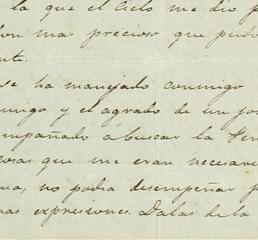 la que el Cielo me dio p
don mas precioso que pudo
nte.
se ha manejado conmigo
migo y el agrado de un jov
mpañado á buscar la
cosas que me eran necesari
no podia desempeñar p
mas expresiones. Dalas de la